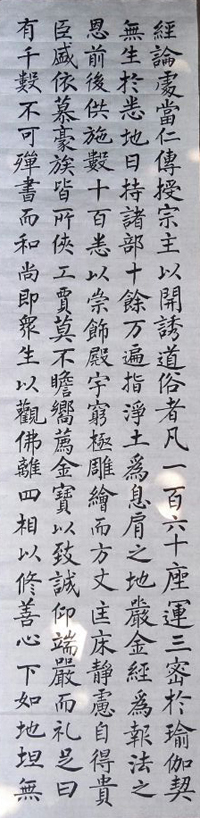 經論處當仁傳授宗主以開誘道俗者凡一百六十座運三密於瑜伽契
無生於悉地日持諸部十餘万遍指淨土為息肩之地嚴金經為報法之
恩前後供施數十百悉以崇飾殿宇窮極雕繪而方丈匡床靜慮自得貴
臣盛依慕豪族皆所俠工賈莫不瞻嚮薦金寶以致誠仰端嚴而礼足日
有千數不可殫書而和尚即衆生以觀佛離四相以修善心下如地坦無